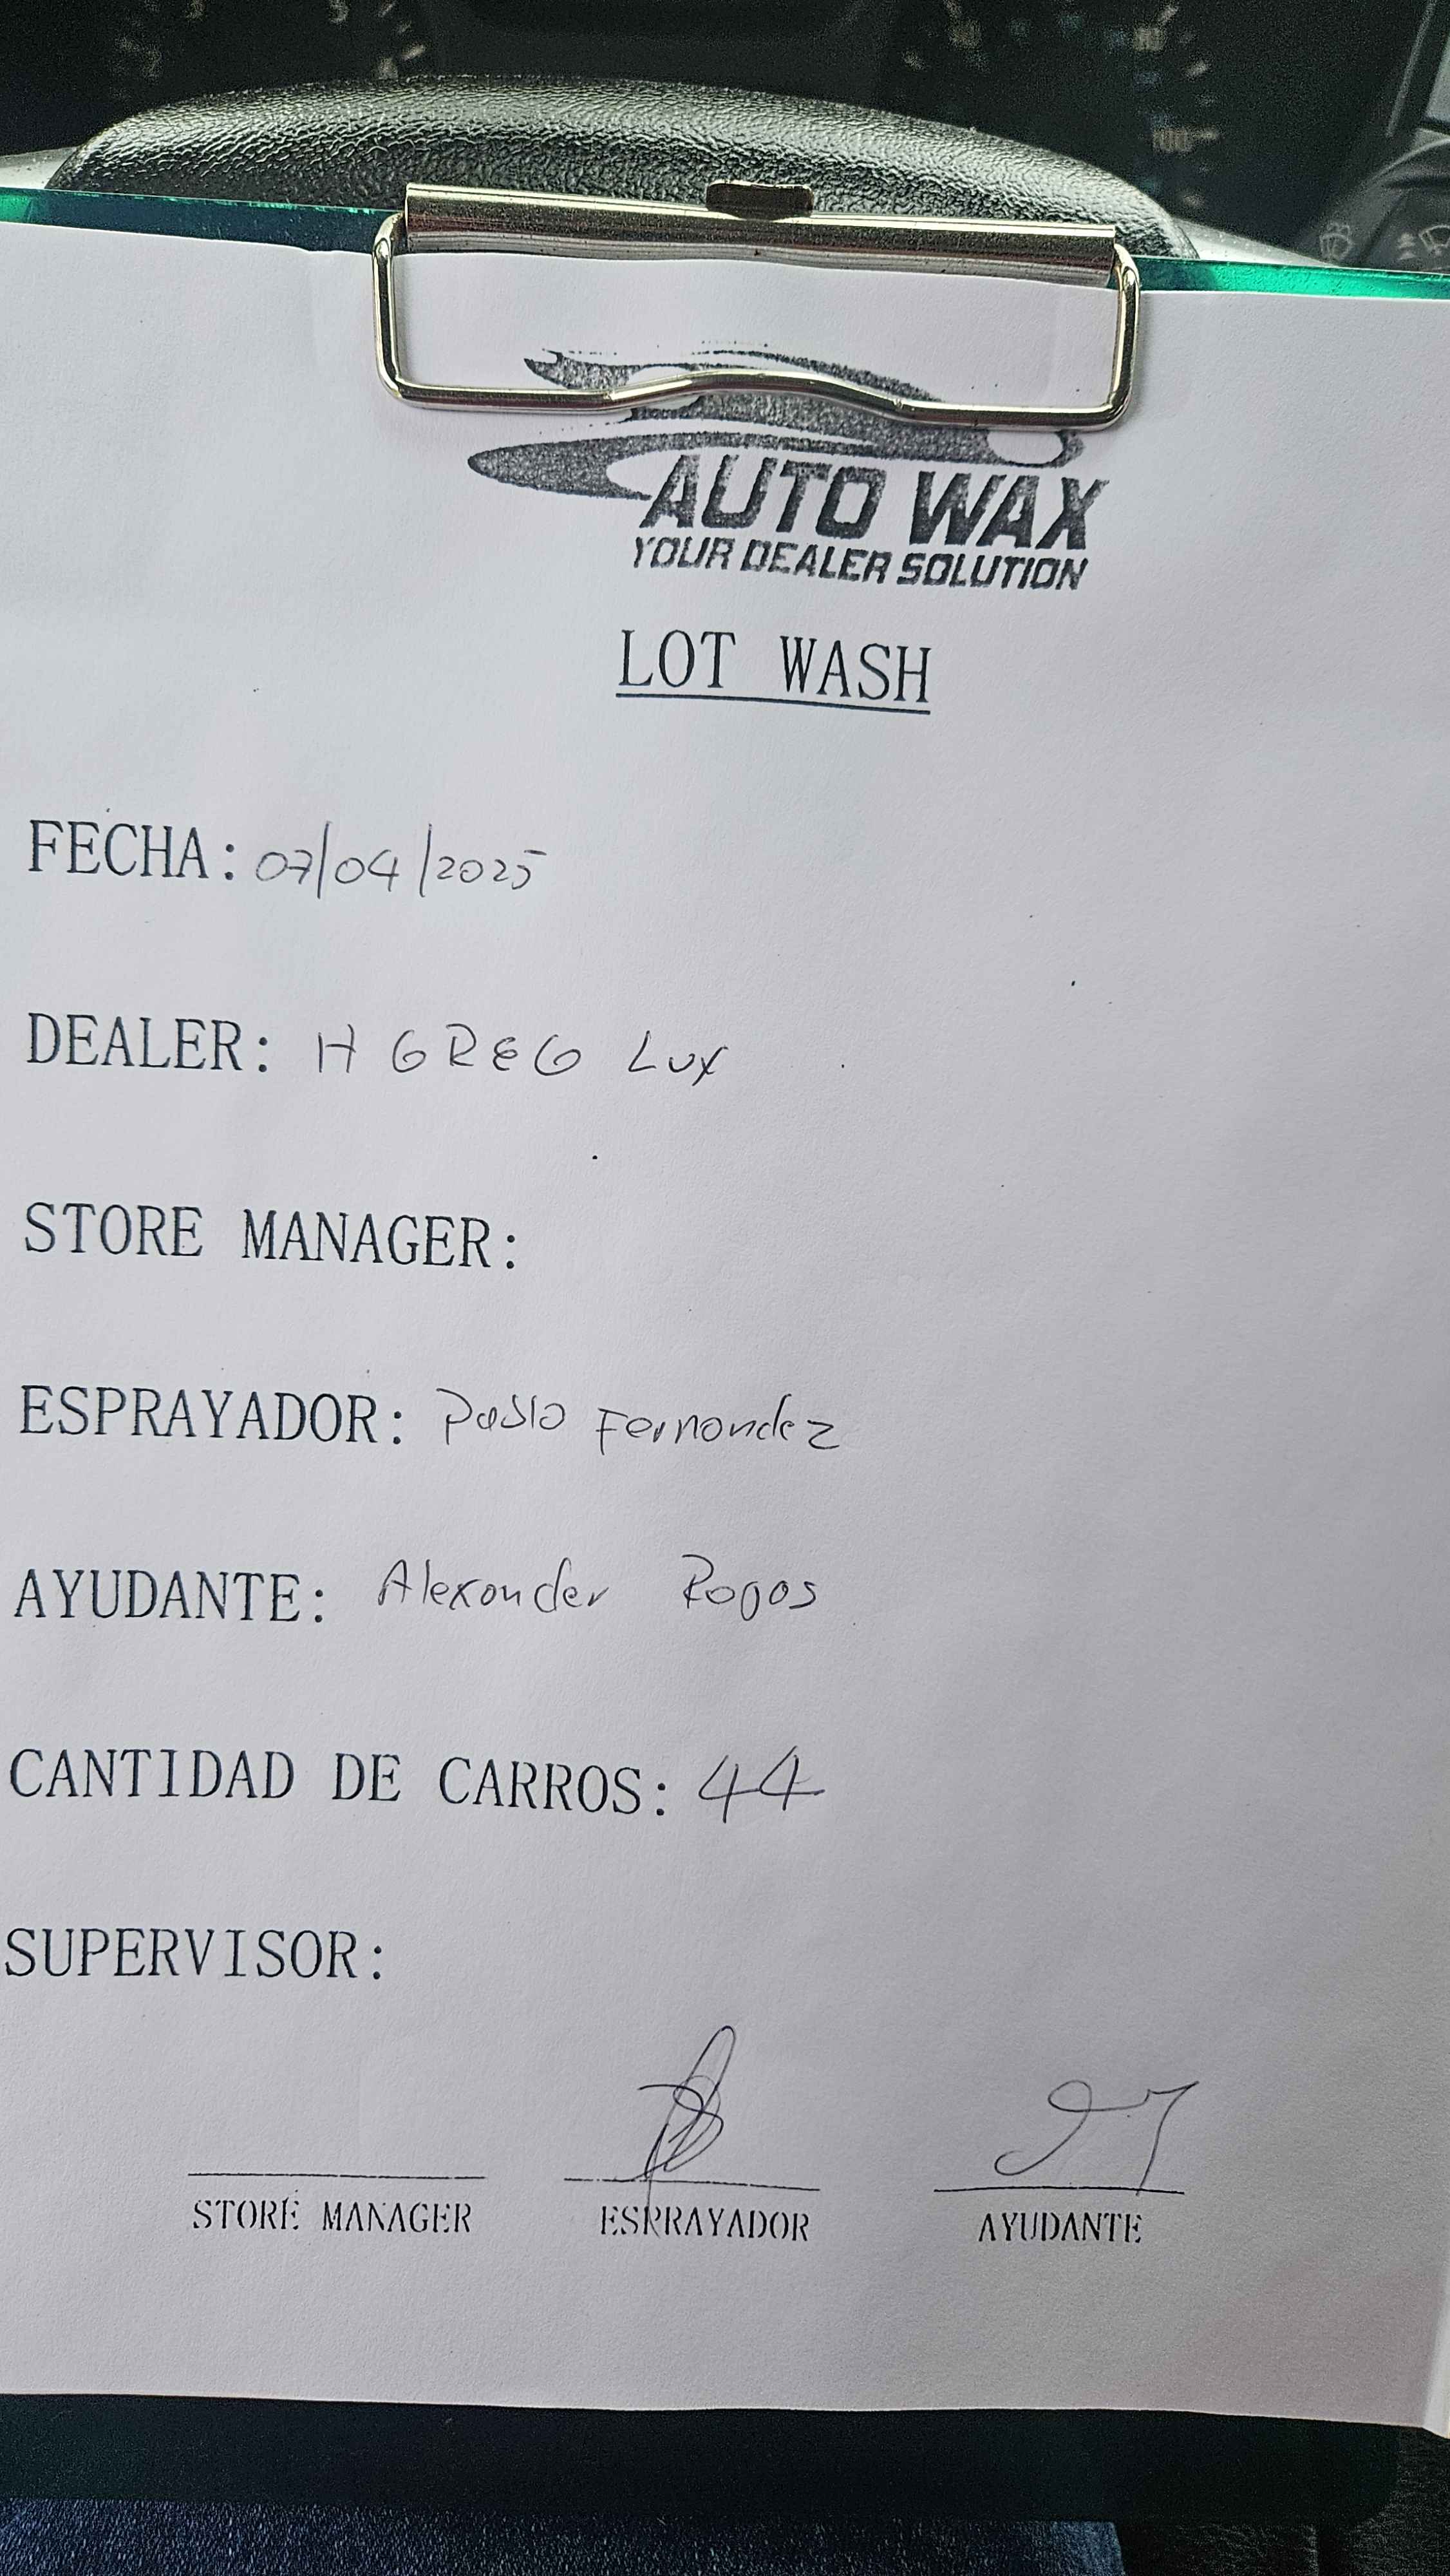 AUTO WAX
YOUR DEALER SOLUTION
LOT WASH
FECHA: 07/04/2025
DEALER: H GREG LUX
STORE MANAGER:
ESPRAYADOR: Pablo Fernandez
AYUDANTE: Alexander Rogos
CANTIDAD DE CARROS: 44
SUPERVISOR:
STORE MANAGER ESPRAYADOR AYUDANTE